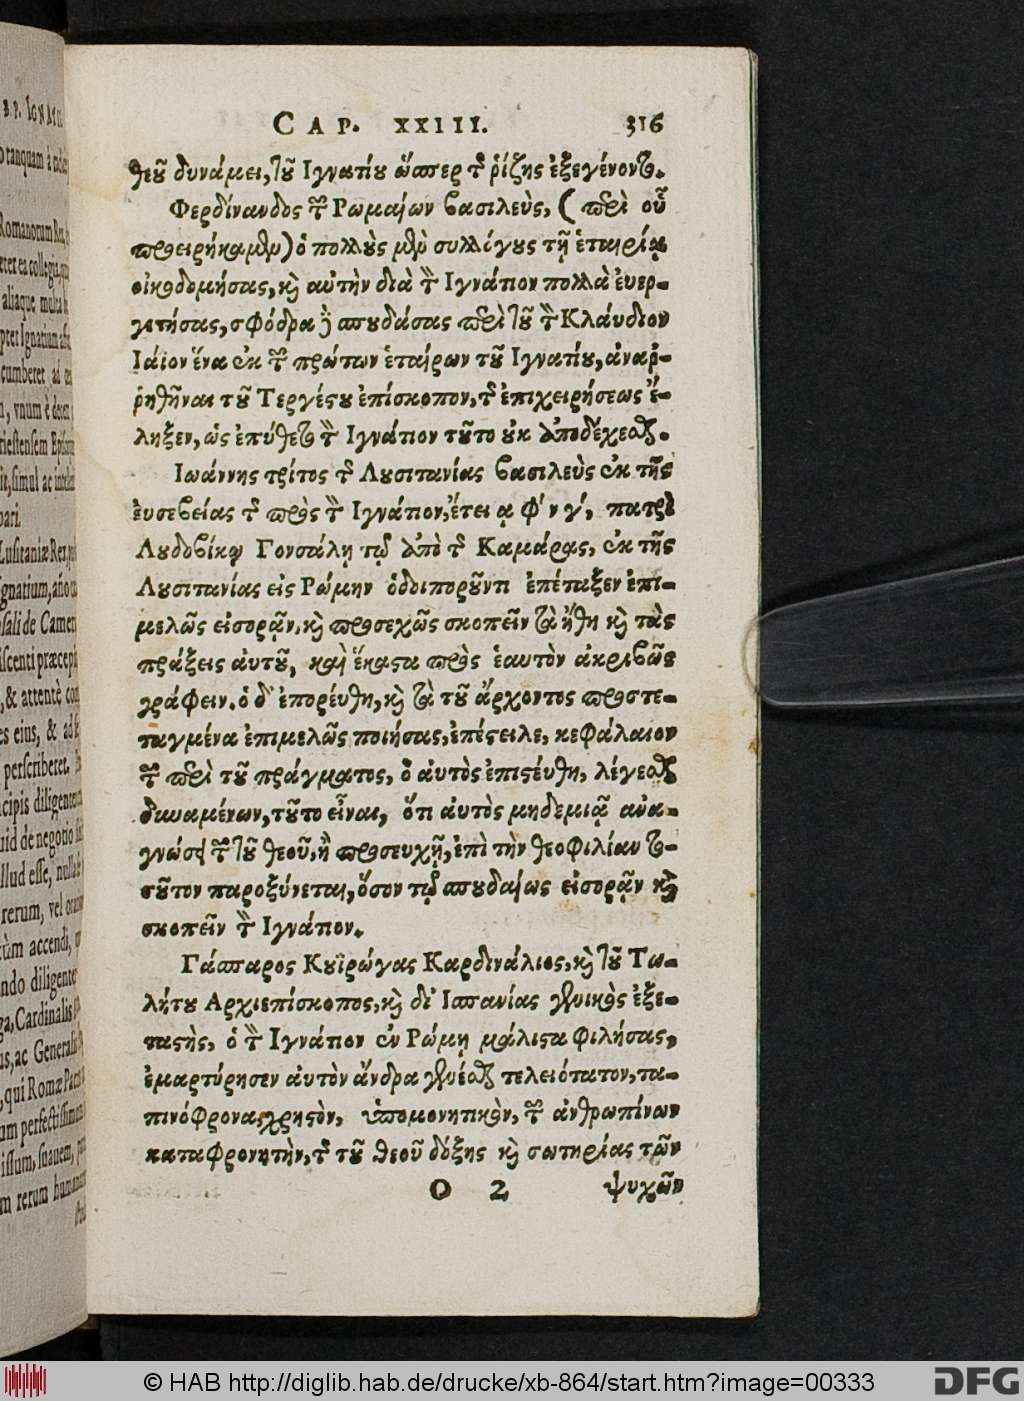 B. P. IGNATII
CAP. XXIII. 316
θεοῦ δυνάμει, τοῦ Ιγνατίου ὥσπερ τῆς ῥίζης ἐξεγένοντο.
Φερδίνανδος τῶν Ρωμαίων βασιλεὺς, (περὶ οὗ
προειρήκαμεν) ὁ πολλοὺς μὲν συλλόγους τῇ ἑταιρίᾳ
οἰκοδομήσας, καὶ αὐτὴν διὰ τὸν Ιγνάτιον πολλὰ ἐυερ-
γετήσας, σφόδρα δὲ σπουδάσας περὶ τοῦ τὸν Κλάυδιον
Ιάϊον ἕνα ἐκ τῶν πρώτων ἑταίρων τοῦ Ιγνατίου, ἀναῤ-
ῥηθῆναι τοῦ Τεργέςου ἐπίσκοπον, τῆς ἐπιχειρήσεως ἔ-
ληξεν, ὡς ἐπύθετο τὸν Ιγνάτιον τοῦτο οὐκ ἀποδέχεσθαι.
Ιωάννης τρίτος τῆς Λουσιτανίας βασιλεὺς ἐκ τῆς
ἐυσεβείας τῆς πρὸς τὸν Ιγνάτιον, ἔτει α φ' ν γ', πατρὶ
Λουδοβίκῳ Γονσάλῃ τῷ ἀπὸ τῆς Καμάρας, ἐκ τῆς
Λουσιτανίας εἰς Ρώμην ὁδοιποροῦντι ἐπέταξεν ἐπι-
μελῶς εἰσορᾷν, καὶ προσεχῶς σκοπεῖν τὰ ἤθη καὶ τὰς
πράξεις ἀυτοῦ, καὶ ἕκαςα πρὸς ἑαυτὸν ἀκριβῶς
γράφειν. ὁ δ' ἐπορέυθη, καὶ τὰ τοῦ ἄρχοντος προστε-
ταγμένα ἐπιμελῶς ποιήσας, ἐπέςειλε, κεφάλαιον
τῶν περὶ τοῦ πράγματος, ὃ ἀυτὸς ἐπιςέυθη, λέγεσθαι
δυναμένων, τοῦτο εἶναι, ὅτι ἀυτὸς μηδεμιᾷ ἀνα-
γνώσει τῶν τοῦ θεοῦ, ἢ προσευχῇ, ἐπὶ τὴν θεοφιλίαν το-
σοῦτον παροξύνεται, ὅσον τῷ σπουδαίως εἰσορᾷν καὶ
σκοπεῖν τὸν Ιγνάτιον.
Γάσπαρος Κουϊρώγας Καρδινάλιος, καὶ τοῦ Τω-
λήτου Αρχιεπίσκοπος, καὶ δι' Ισπανίας γενικὸς ἐξε-
ταςὴς, ὁ τὸν Ιγνάτιον ἐν Ρώμῃ μάλιςα φιλήσας,
ἐμαρτύρησεν ἀυτὸν ἄνδρα γενέσθαι τελειότατον, τα-
πινόφρονα, χρηςὸν, ὑπομονητικὸν, τῶν ἀνθρωπίνων
καταφρονητὴν, τῆς τοῦ θεοῦ δόξης καὶ σωτηρίας τῶν
O 2 ψυχῶν
© HAB http://diglib.hab.de/drucke/xb-864/start.htm?image=00333
DFG